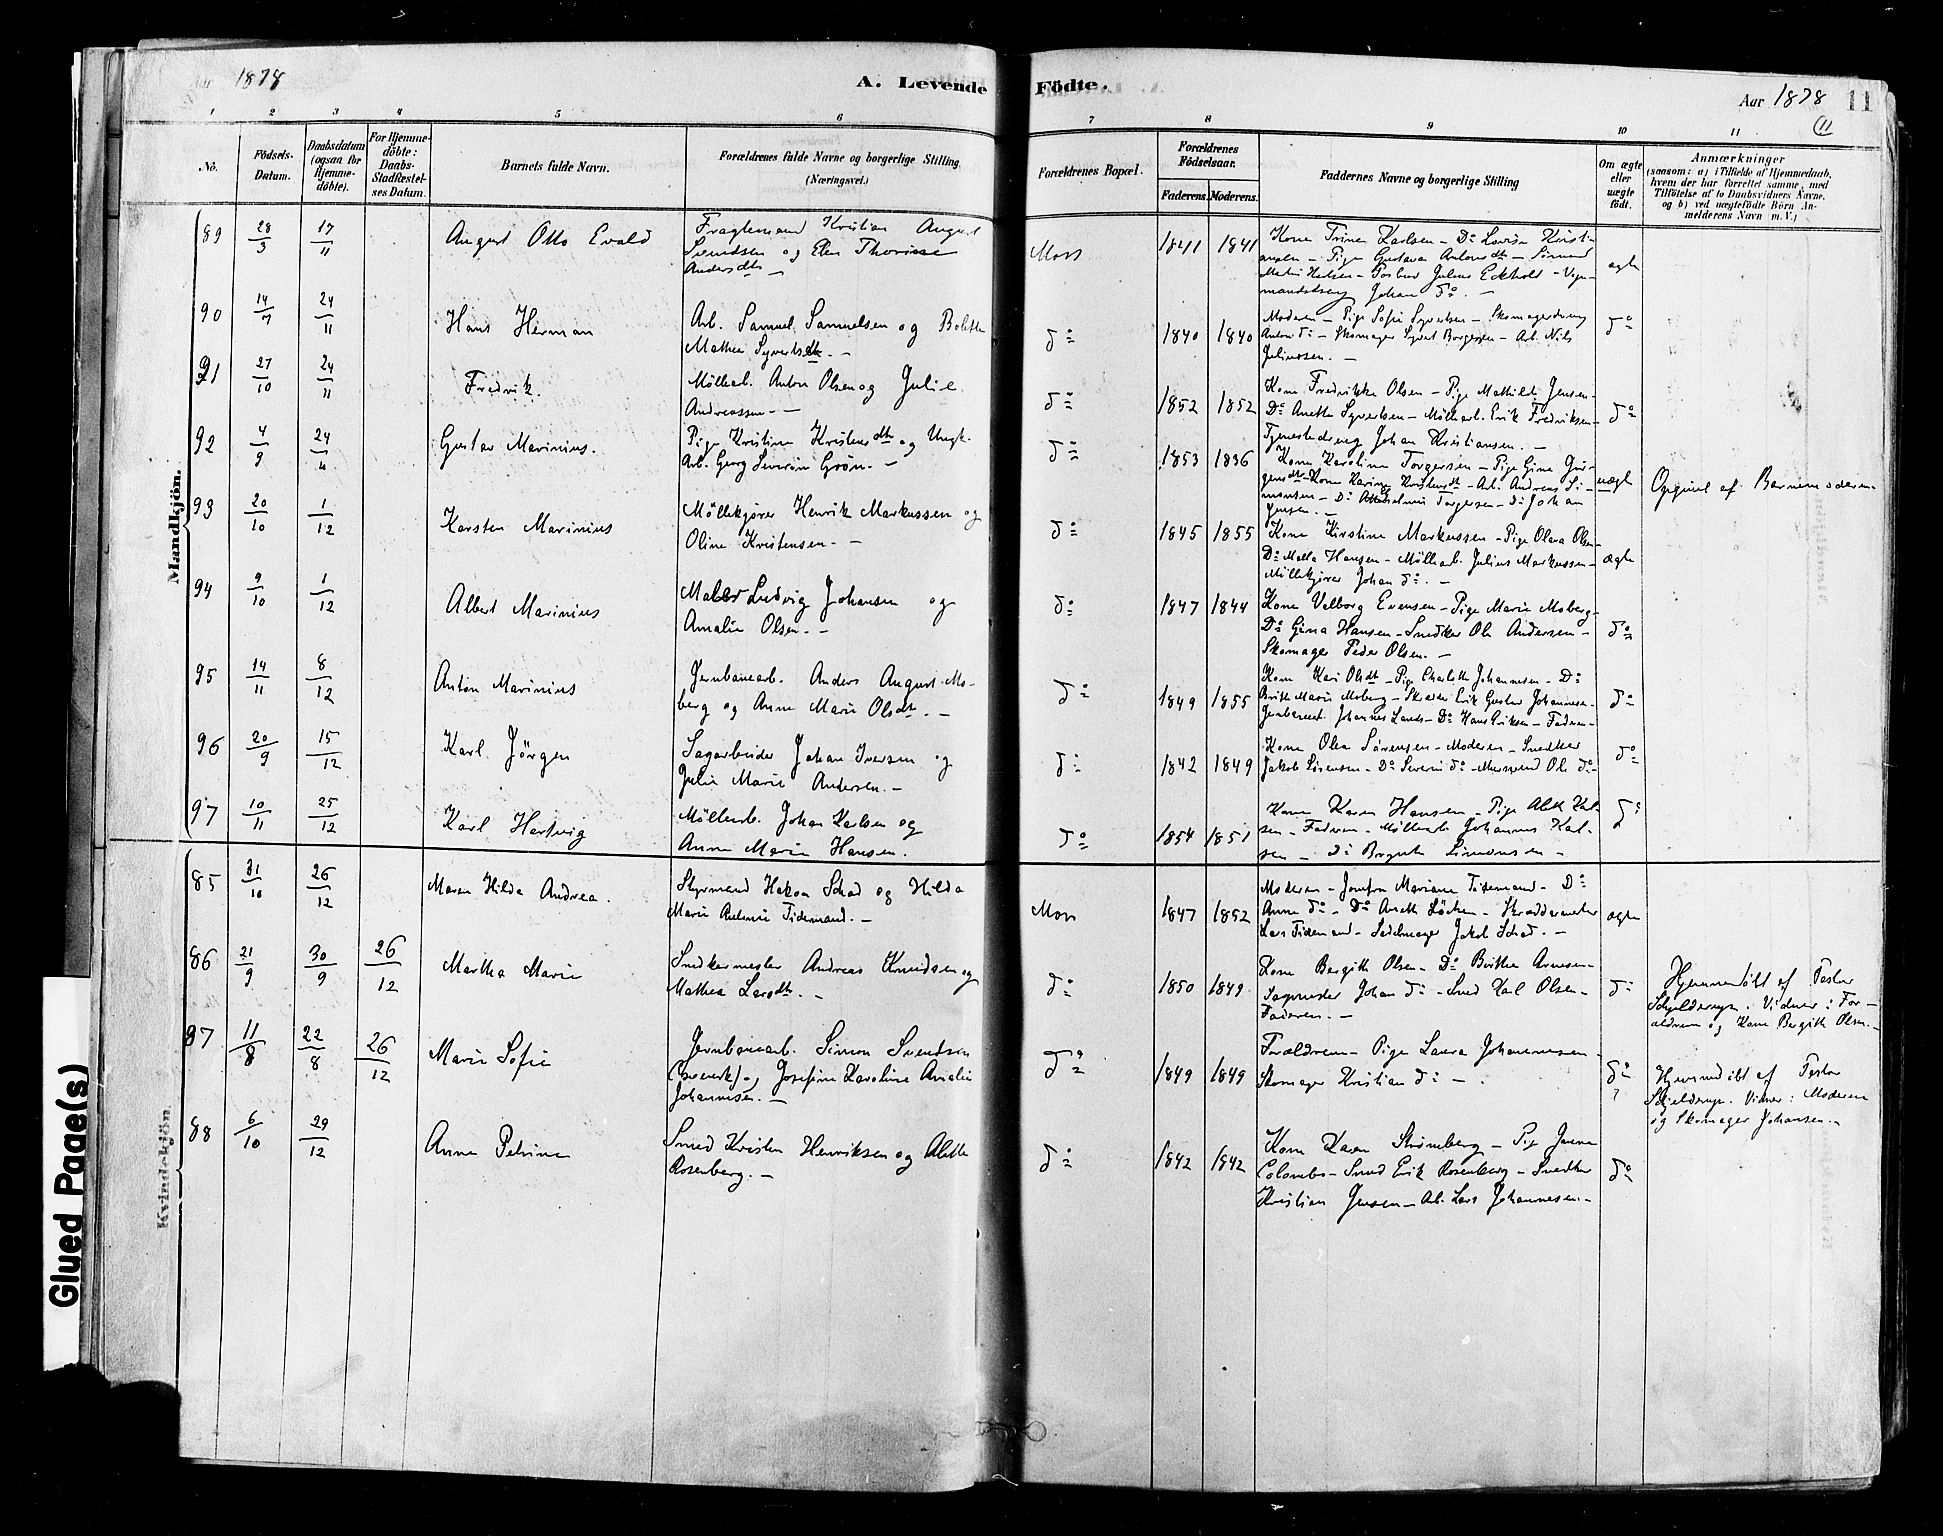 Aar 1878
A. Levende Födte.
Aar 1878 11
(11
1 2 3 4 5 6 7 8 9 10 11
No.
Födsels-Datum.
Daabsdatum (ogsaa for Hjemme-döbte).
For Hjemme-döbte: Daabs-Stadfæstel-ses Datum.
Barnets fulde Navn.
Forældrenes fulde Navne og borgerlige Stilling.
(Næringsvei.)
Forældrenes Bopæl.
Forældrenes Födselsaar.
Faderens. Moderens.
Faddernes Navne og borgerlige Stilling
Om ægte eller uægte födt.
Anmærkninger
(saasom: a) i Tilfælde af Hjemmedaab,
hvem der har forrettet samme, med
Tilföielse af to Daabsvidners Navne,
og b) ved uægtefödte Börn An-
melderens Navn m. V.)
Mandkjön.
89 28/3 17/11 August Otto Evald
Fragtemand Kristian August
Svendsen og Elen Thorine
Andersdtr —
Moss 1841 1841
Kone Trine Karlsen — Do Lovise Krist-
ansen — Pige Gustava Antonsdtr —
Julius Eckholt —
Johan do. —
ægte
90 14/7 24/11 Hans Herman
Arb. Samuel Samuelsen og Bolette
Mathea Syvertsdtr. —
do 1840 1840
Moderen — Pige Sofie Syvertsen — Skomagerdreng
Anton do — Skomager Syvert Borgersen — Arb. Nils
Juliussen. —
do
91 27/10 24/11 Fredrik.
Möllearb. Anton Olsen og Julie
Andreassen. —
do 1852 1852
Kone Fredrikke Olsen — Pige Mathilde Jensen —
Do Anette Syvertsen — Möllearb. Erik Fredriksen —
Tjenestedreng Johan Kristiansen. —
do
92 4/9 24/11 Gustav Marinius.
Pige Kristine Kristensdtr og Ungk.
Arb. Georg Severin Grön. —
do 1853 1836
Kone Karoline Torgersen — Pige Gina Jör-
gensdtr — Kone Karine Kristensdtr — Arb. Andreas Si-
monsen — Torgersen — Do Johan
Jensen. —
uægte
Opgivet af Barnemoderen.
93 20/10 1/12 Karsten Marinius
Möllekjörer Henrik Markussen og
Oline Kristensen. —
do 1845 1855
Kone Kirstine Markussen — Pige Olava Olsen —
Do Malla Hansen — Möllearb. Julius Markussen —
Möllekjörer Johan do. —
ægte
94 9/10 1/12 Albert Marinius
Maler Ludvig Johansen og
Amalie Olsen. —
do 1847 1844
Kone Valborg Evensen — Pige Marie Moberg —
Do Gina Hansen — Snedker Ole Andersen —
Skomager Peder Olsen. —
do
95 14/11 8/12 Anton Marinius
Jernbanearb. Anders August Mo-
berg og Anne Marie Olsdtr. —
do 1849 1855
Kone Kari Olsdtr — Pige Charlotte Johannesen — Do
Britte Marie Moberg — Skræder Erik Gustav Johannesen —
Jernbanearb. Johannes — Do Hans Eriksen — Faderen —
do
96 20/9 15/12 Karl Jörgen
Sagarbeider Johan Iversen og
Julie Marie Andersen. —
do 1842 1849
Kone Olea Sörensen — Moderen — Snedker
Jakob Sörensen — Do Severin do — Ole do —
do
97 10/11 25/12 Karl Hartvig
Möllearb. Johan Karlsen og
Anne Marie Hansen.
do 1854 1851
Kone Karen Hansen — Pige Alette Kal-
sen — Faderen — Möllearb Johannes Kal-
sen — Do Simonsen —
do
Kvindekjön.
85 31/10 26/12 Maren Hilda Andrea.
Styrmand Hakon Schad og Hilda
Marie Antonie Tidemand. —
Moss 1847 1852
Moderen — Jomfru Mariane Tidemand — Do
Anne do — Do Anette Löcken — Skræddermester
Lars Tidemand — Sadelmager Jakob Schad. —
ægte
86 21/9 30/9 26/12 Martha Marie
Snedkermester Andreas Knudsen og
Mathea Larsdtr. —
do 1850 1849
Kone Bergitte Olsen — Do Berthe Arnesen —
Johan do — Smed Karl Olsen —
Faderen. —
do
Hjemmedöbt af Pastor
Schjelderup. Vidner: For-
ældrene og Kone Bergitte Olsen. —
87 11/8 22/8 26/12 Marie Sofie
Jernbanearb. Simon Svendsen
og Josefine Karoline Amalie
Johannesen. —
do 1849 1849
Forældrene — Pige Laura Johannesen —
Skomager Kristian do —.
do
Hjemmedöbt af Pastor
Schjelderup. Vidner: Moderen
og Skomager Johansen. —
88 6/10 29/12 Anne Petrine
Smed Kristen Henriksen og Alette
Rosenberg. —
do 1842 1842
Kone Karen Strömberg — Pige Janna
Colombo — Smed Erik Rosenberg — Snedker
Kristian Jensen — Arb. Lars Johannesen. —
do
Glued Page(s)